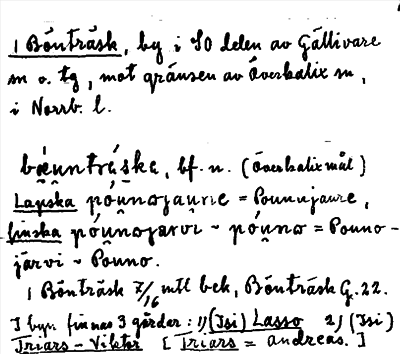 1 Bönträsk, by i SO delen av Gällivare
sn o. tg, mot gränsen av Överkalix sn,
i Norrb. l.
bœ́u̯nträ́ske, bf. n. (Överkalixmål)
Lapska póu̯nɷjau̯rie = Pounujaure,
finska póu̯nɷjarvi ~ póu̯nɷ = Pouno-
järvi ~ Pouno.
1 Bönträsk 7/16 mtl bek, Bönträsk G. 22.
I byn finnas 3 gårder: 1) (Isi) Lasso 2) (Isi)
Triars - Viktor [Triars = andreas.]